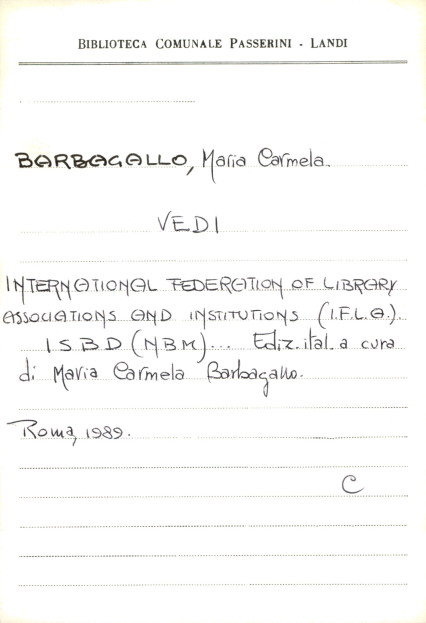 BIBLIOTECA COMUNALE PASSERINI - LANDI
BARBAGALLO, Maria Carmela.
VEDI
INTERNATIONAL FEDERATION OF LIBRARY
ASSOCIATIONS AND INSTITUTIONS (I.F.L.A.).
ISBD (NBM)... Ediz. ital. a cura
di Maria Carmela Barbagallo.
Roma, 1989.
C